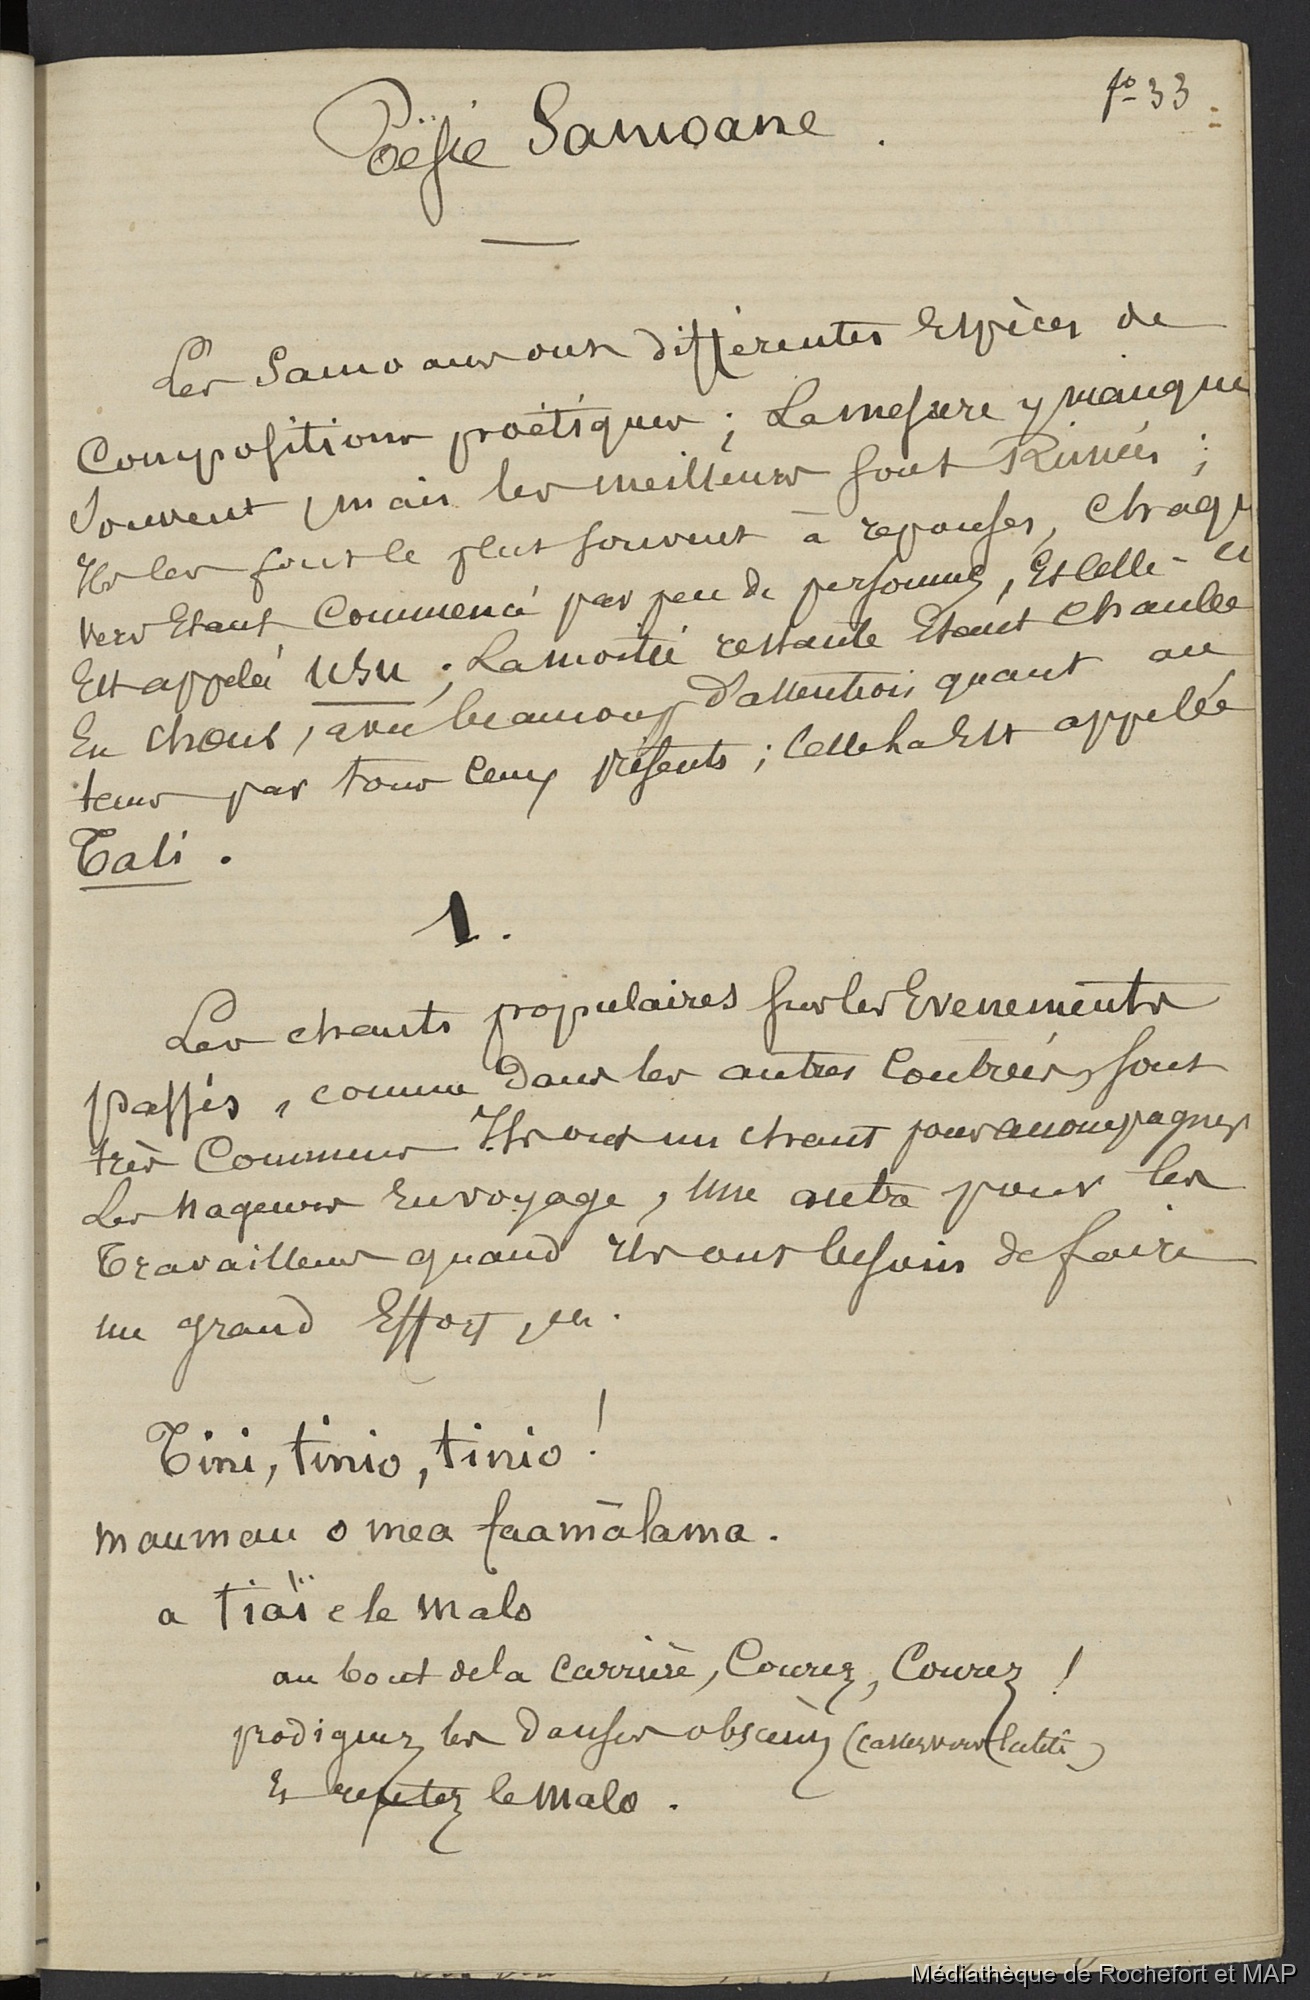 fo 33
Poësie Samoane.
Les Samoans ont différentes Espèces de
Compositions poétiques ; La mesure y manque
Souvent, mais les meilleures sont Rimées ;
Ils les font le plus souvent à reponses, Chaque
vers Etant Commencé par peu de personnes, Et Celle-ci
Est appelé usu ; La moitié restante Etant Chantée
En chœur, avec beaucoup d'attention quant au
tems par tous ceux présents ; Celle la Est appelée
Tali.
1.
Les chants populaires sur les Evenements
passés, comme dans les autres Contrées, sont
très Communs Ils ont un chant pour accompagner
Les nageurs En voyage, Un autre pour les
Travailleurs quand Ils ont besoin de faire
un grand Effort,
Tini, tinio, tinio !
maumau o mea faamàlama.
a tiaï e le malo
au bout de la Carrière, Courez, Courez !
prodiguez les danses obscènes
Et repetez le malo.
Médiathèque de Rochefort et MAP